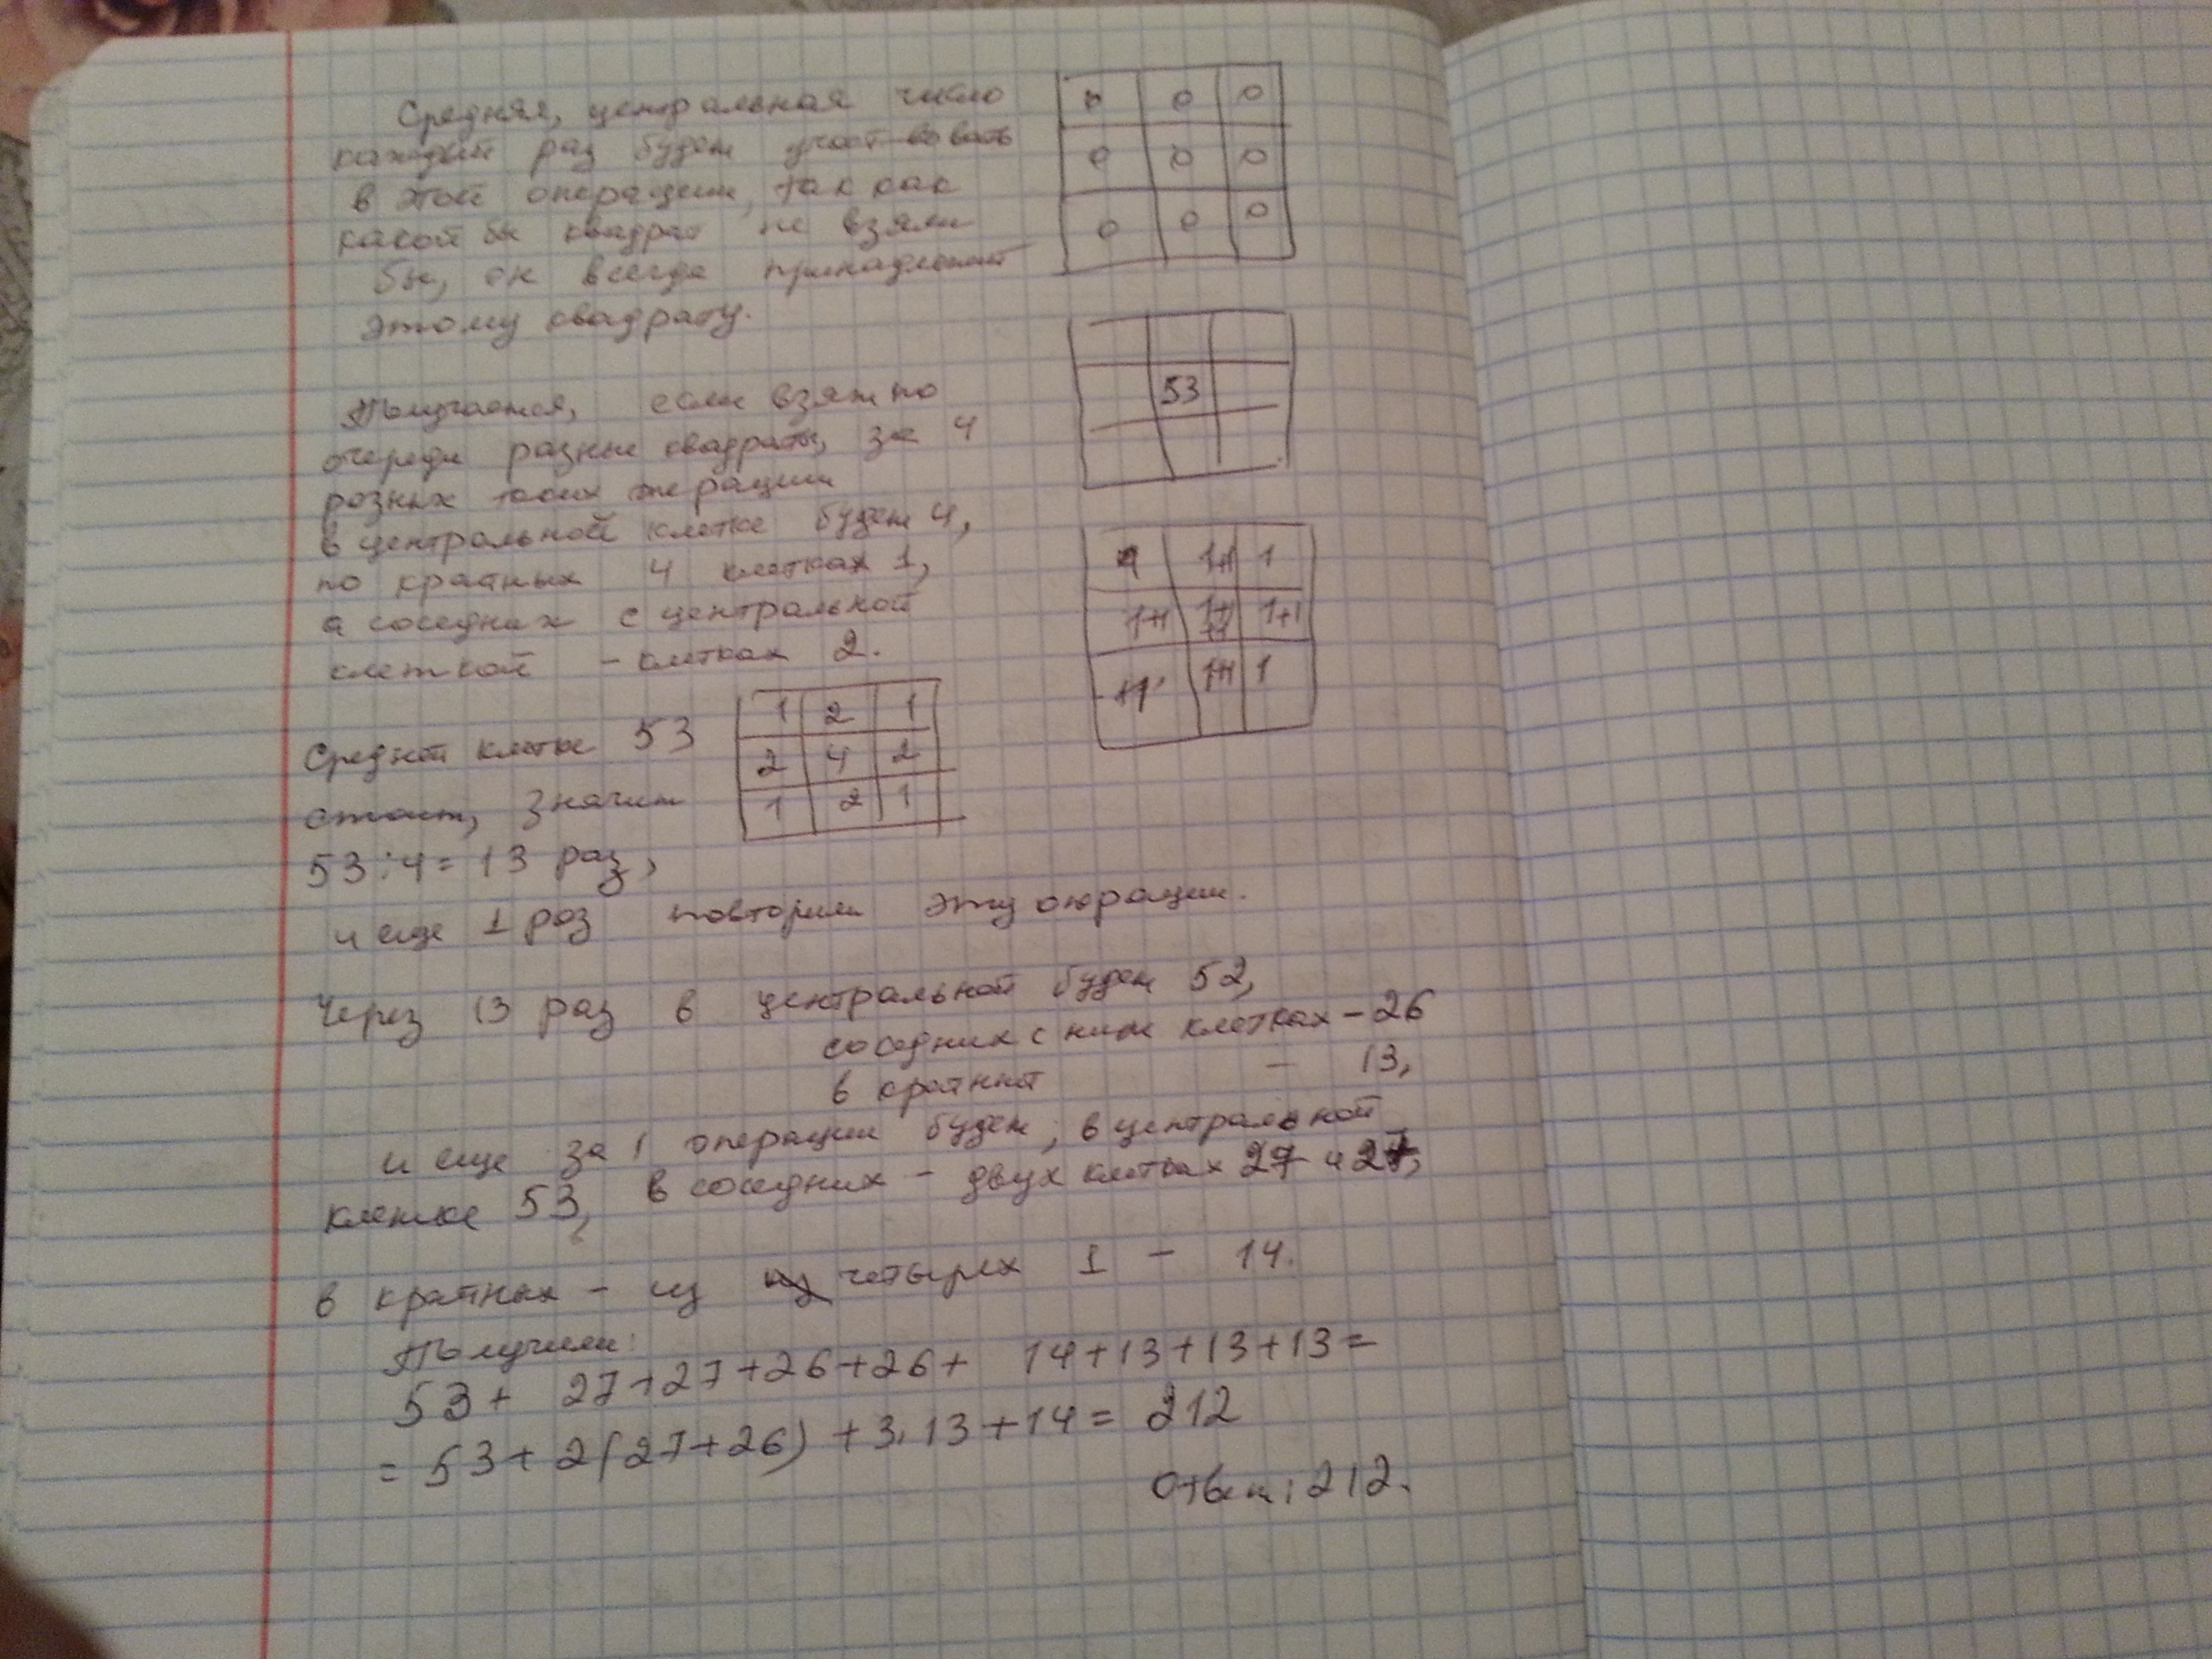 Средняя, центральная число
каждый раз будет участвовать
в этой операции, так как
какой бы квадрат не взяли
бы, он всегда принадлежит
этому квадрату.
0 0 0
0 0 0
0 0 0
53
Получается, если взят по
очереди разные квадраты, за 4
разных таких операции
в центральной клетке будет 4,
по крайных 4 клетках 1,
а соседних с центральной
клеткой - клетках 2.
1+1 1
1+1 1+1 1+1
1+1 1
Средней клетке 53
стоит, значит
53:4=13 раз,
и еще 1 раз повторим эту операции.
1 2 1
2 4 2
1 2 1
Через 13 раз в центральной будет 52,
соседних с ним клетках - 26
в крайней - 13,
и еще за 1 операции будет, в центральной
клетке 53, в соседних - двух клетках 27 и 27,
в крайных - из четырех 1 - 14.
Получили:
53+ 27+27+26+26+ 14+13+13+13=
= 53+2(27+26)+3·13+14= 212
Ответ: 212.